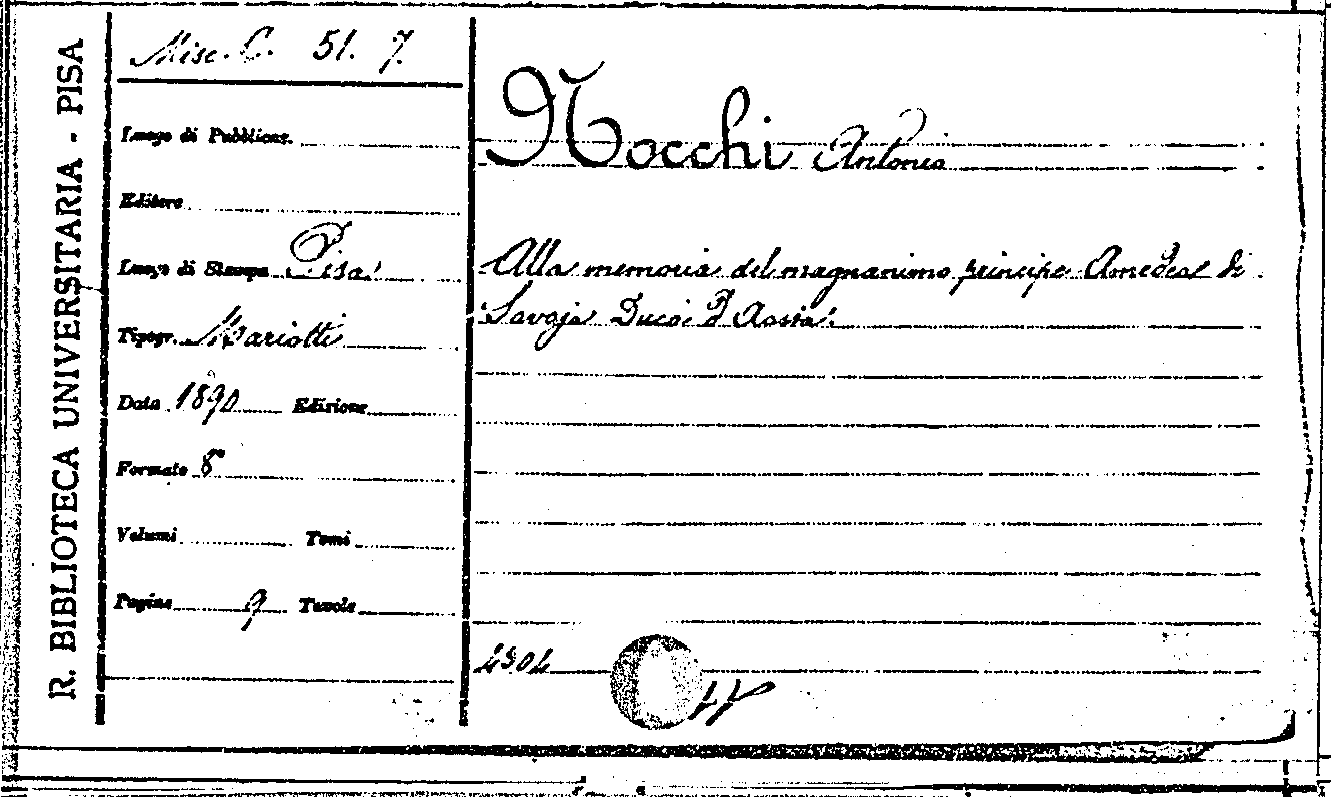 R. BIBLIOTECA UNIVERSITARIA - PISA
Misc. C. 51. 7.
Luogo di Pubblicaz.
Editore
Luogo di Stampa Pisa
Tipogr. Mariotti
Data 1890 Edizione
Formato 8°
Volumi Tomi
Pagine 9 Tavole
Nocchi Antonio
Alla memoria del magnanimo principe Amedeo di
Savoja Duca d'Aosta.